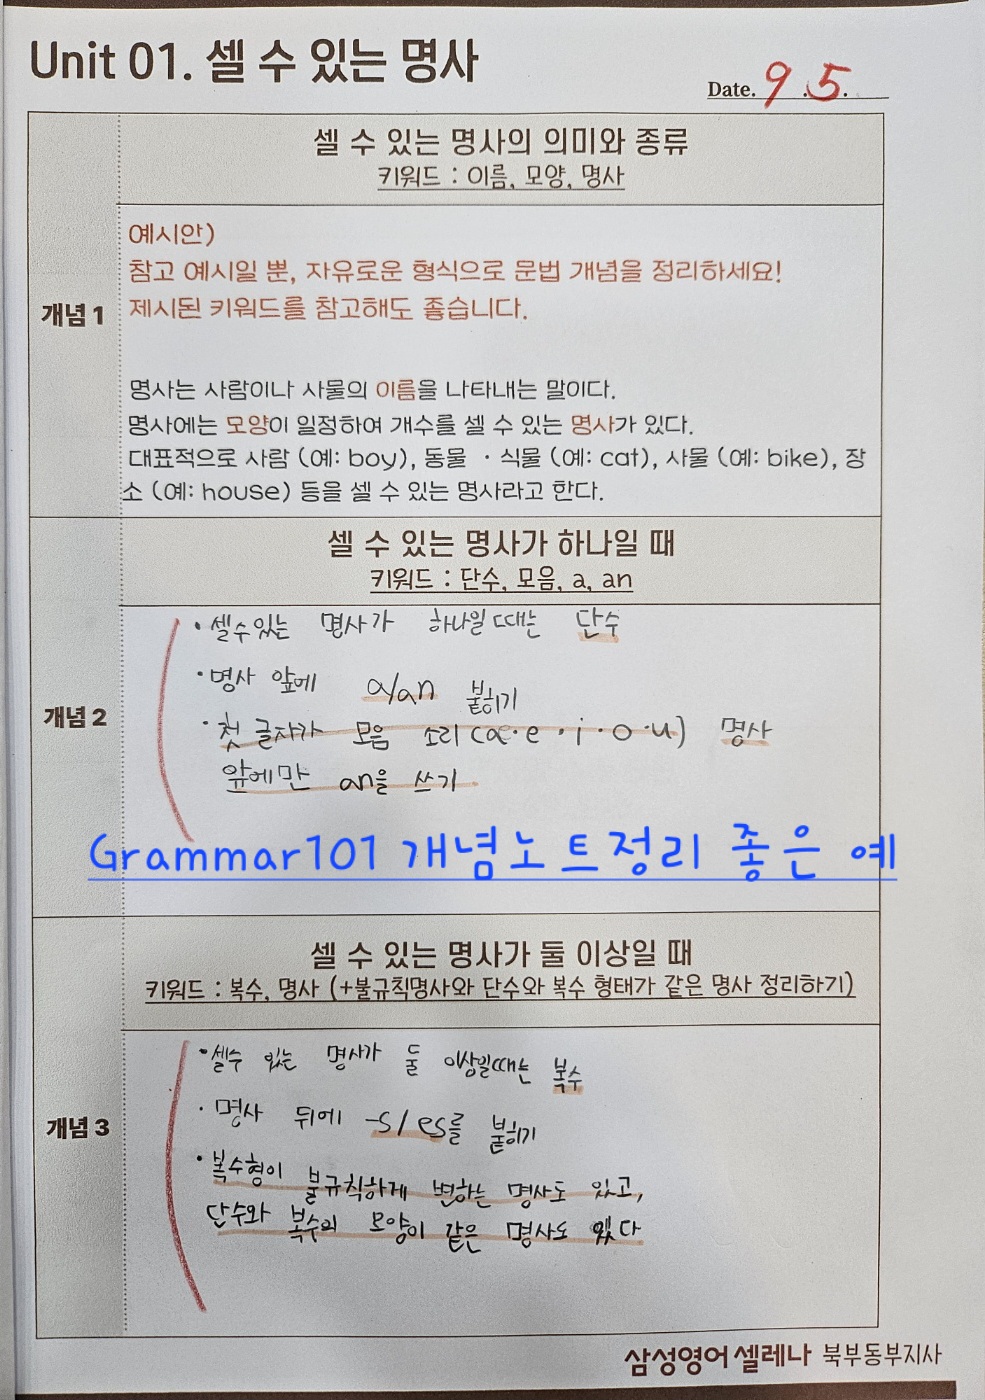 Unit 01. 셀 수 있는 명사
Date. 9 .5.
셀 수 있는 명사의 의미와 종류
키워드 : 이름, 모양, 명사
개념 1
예시안)
참고 예시일 뿐, 자유로운 형식으로 문법 개념을 정리하세요!
제시된 키워드를 참고해도 좋습니다.
명사는 사람이나 사물의 이름을 나타내는 말이다.
명사에는 모양이 일정하여 개수를 셀 수 있는 명사가 있다.
대표적으로 사람 (예: boy), 동물 · 식물 (예: cat), 사물 (예: bike), 장
소 (예: house) 등을 셀 수 있는 명사라고 한다.
셀 수 있는 명사가 하나일 때
키워드 : 단수, 모음, a, an
개념 2
• 셀수있는 명사가 하나일 때는 단수
• 명사 앞에 a/an 붙히기
• 첫 글자가 모음 소리 (a·e·i·o·u) 명사
앞에만 an을 쓰기
Grammar101 개념노트정리 좋은 예
셀 수 있는 명사가 둘 이상일 때
키워드 : 복수, 명사 (+불규칙명사와 단수와 복수 형태가 같은 명사 정리하기)
개념 3
• 셀수 있는 명사가 둘 이상일때는 복수
• 명사 뒤에 -s/es를 붙히기
• 복수형이 불규칙하게 변하는 명사도 있고,
단수와 복수의 모양이 같은 명사도 있다
삼성영어 셀레나 북부동부지사